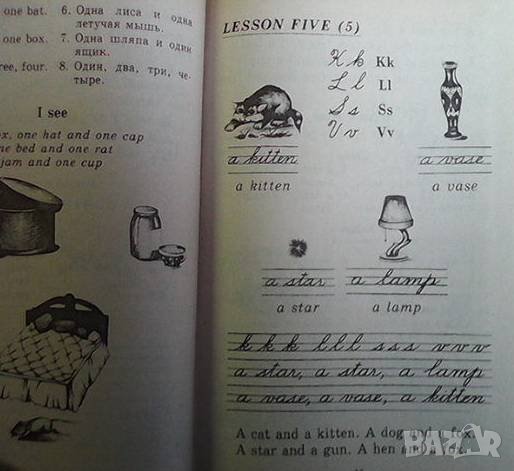 one bat.
one box.
ree, four.
6. Одна лиса и одна
летучая мышь.
7. Одна шляпа и один
ящик.
8. Один, два, три, че-
тыре.
I see
ox, one hat and one cap
ne bed and one rat
jam and one cup
LESSON FIVE (5)
K k Kk
L l Ll
S s Ss
V v Vv
a kitten
a kitten
a vase
a vase
a star
a star
a lamp
a lamp
k k k l l l s s s v v v
a star, a star, a lamp
a vase, a vase, a kitten
A cat and a kitten. A dog and a fox.
A star and a gun. A hen and a fox.
BAZAR